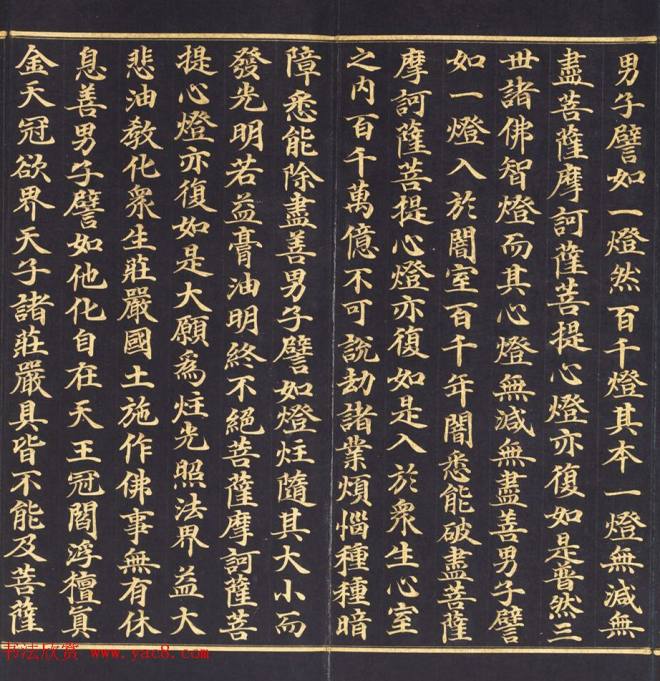 男子譬如一燈然百千燈其本一燈無減無
盡菩薩摩訶薩菩提心燈亦復如是普然三
世諸佛智燈而其心燈無減無盡善男子譬
如一燈入於闇室百千年闇悉能破盡菩薩
摩訶薩菩提心燈亦復如是入於衆生心室
之内百千萬億不可說劫諸業煩惱種種暗
障悉能除盡善男子譬如燈炷隨其大小而
發光明若益膏油明終不絕菩薩摩訶薩菩
提心燈亦復如是大願爲炷光照法界益大
悲油教化衆生莊嚴國土施作佛事無有休
息善男子譬如他化自在天王冠閻浮檀真
金天冠欲界天子諸莊嚴具皆不能及菩薩
书法欣赏 www.yac8.com